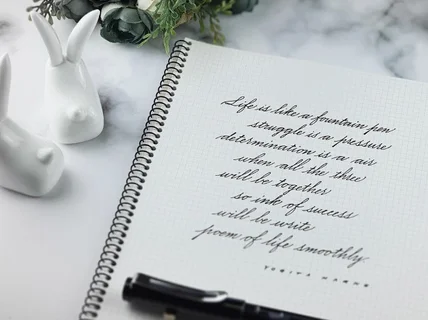 Life is like a fountain pen
struggle is a pressure
determination is a air
when all the three
will be together
so ink of success
will be write
poem of life smoothly.